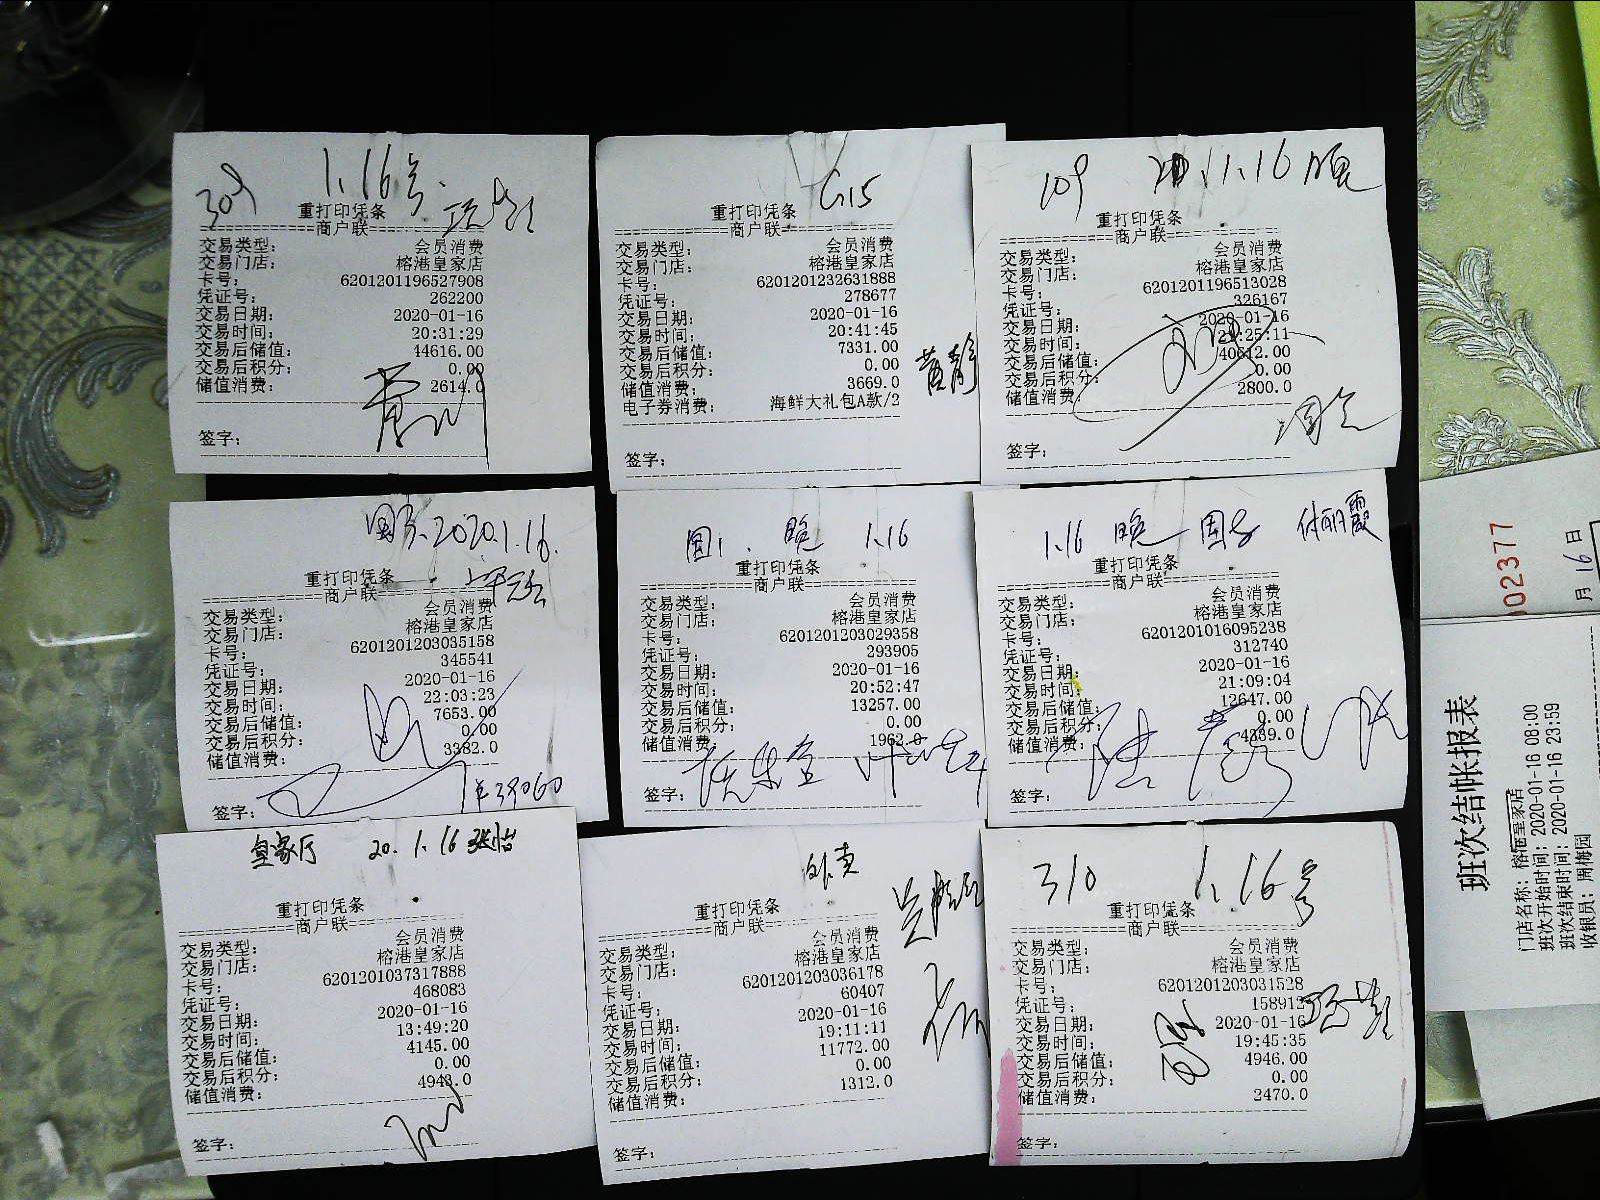 309
1.16号
重打印凭条
==============商户联==============
交易类型: 会员消费
交易门店: 榕港皇家店
卡号: 6201201196527908
凭证号: 262200
交易日期: 2020-01-16
交易时间: 20:31:29
交易后储值: 44616.00
交易后积分: 0.00
储值消费: 2614.0
签字:
G15
重打印凭条
==============商户联==============
交易类型: 会员消费
交易门店: 榕港皇家店
卡号: 6201201232631888
凭证号: 278677
交易日期: 2020-01-16
交易时间: 20:41:45
交易后储值: 7331.00
交易后积分: 0.00
储值消费: 3669.0
电子券消费: 海鲜大礼包A款/2
黄静
签字:
109 1.16 晚
重打印凭条
==============商户联==============
交易类型: 会员消费
交易门店: 榕港皇家店
卡号: 6201201196513028
凭证号: 326167
交易日期: 2020-01-16
交易时间: :25:11
交易后储值: 40612.00
交易后积分: 0.00
储值消费: 2800.0
签字:
2020.1.16.
重打印凭条
==============商户联==============
交易类型: 会员消费
交易门店: 榕港皇家店
卡号: 6201201203035158
凭证号: 345541
交易日期: 2020-01-16
交易时间: 22:03:23
交易后储值: 7653.00
交易后积分: 0.00
储值消费: 3382.0
签字:
国1. 晚 1.16
重打印凭条
==============商户联==============
交易类型: 会员消费
交易门店: 榕港皇家店
卡号: 6201201203029358
凭证号: 293905
交易日期: 2020-01-16
交易时间: 20:52:47
交易后储值: 13257.00
交易后积分: 0.00
储值消费: 1962.0
签字:
1.16 晚 付丽霞
重打印凭条
==============商户联==============
交易类型: 会员消费
交易门店: 榕港皇家店
卡号: 6201201016095238
凭证号: 312740
交易日期: 2020-01-16
交易时间: 21:09:04
交易后储值: 12647.00
交易后积分: 0.00
储值消费: 4339.0
签字:
皇家厅 20.1.16 张怡
重打印凭条
==============商户联==============
交易类型: 会员消费
交易门店: 榕港皇家店
卡号: 6201201037317888
凭证号: 468083
交易日期: 2020-01-16
交易时间: 13:49:20
交易后储值: 4145.00
交易后积分: 0.00
储值消费: 4943.0
签字:
外卖
重打印凭条
==============商户联==============
交易类型: 会员消费
交易门店: 榕港皇家店
卡号: 6201201203036178
凭证号: 60407
交易日期: 2020-01-16
交易时间: 19:11:11
交易后储值: 11772.00
交易后积分: 0.00
储值消费: 1312.0
签字:
310 1.16号
重打印凭条
==============商户联==============
交易类型: 会员消费
交易门店: 榕港皇家店
卡号: 6201201203031528
凭证号: 158912
交易日期: 2020-01-16
交易时间: 19:45:35
交易后储值: 4946.00
交易后积分: 0.00
储值消费: 2470.0
签字:
02377
月16日
班次结帐报表
门店名称: 榕港皇家店
班次开始时间: 2020-01-16 08:00
班次结束时间: 2020-01-16 23:59
收银员: 周梅园